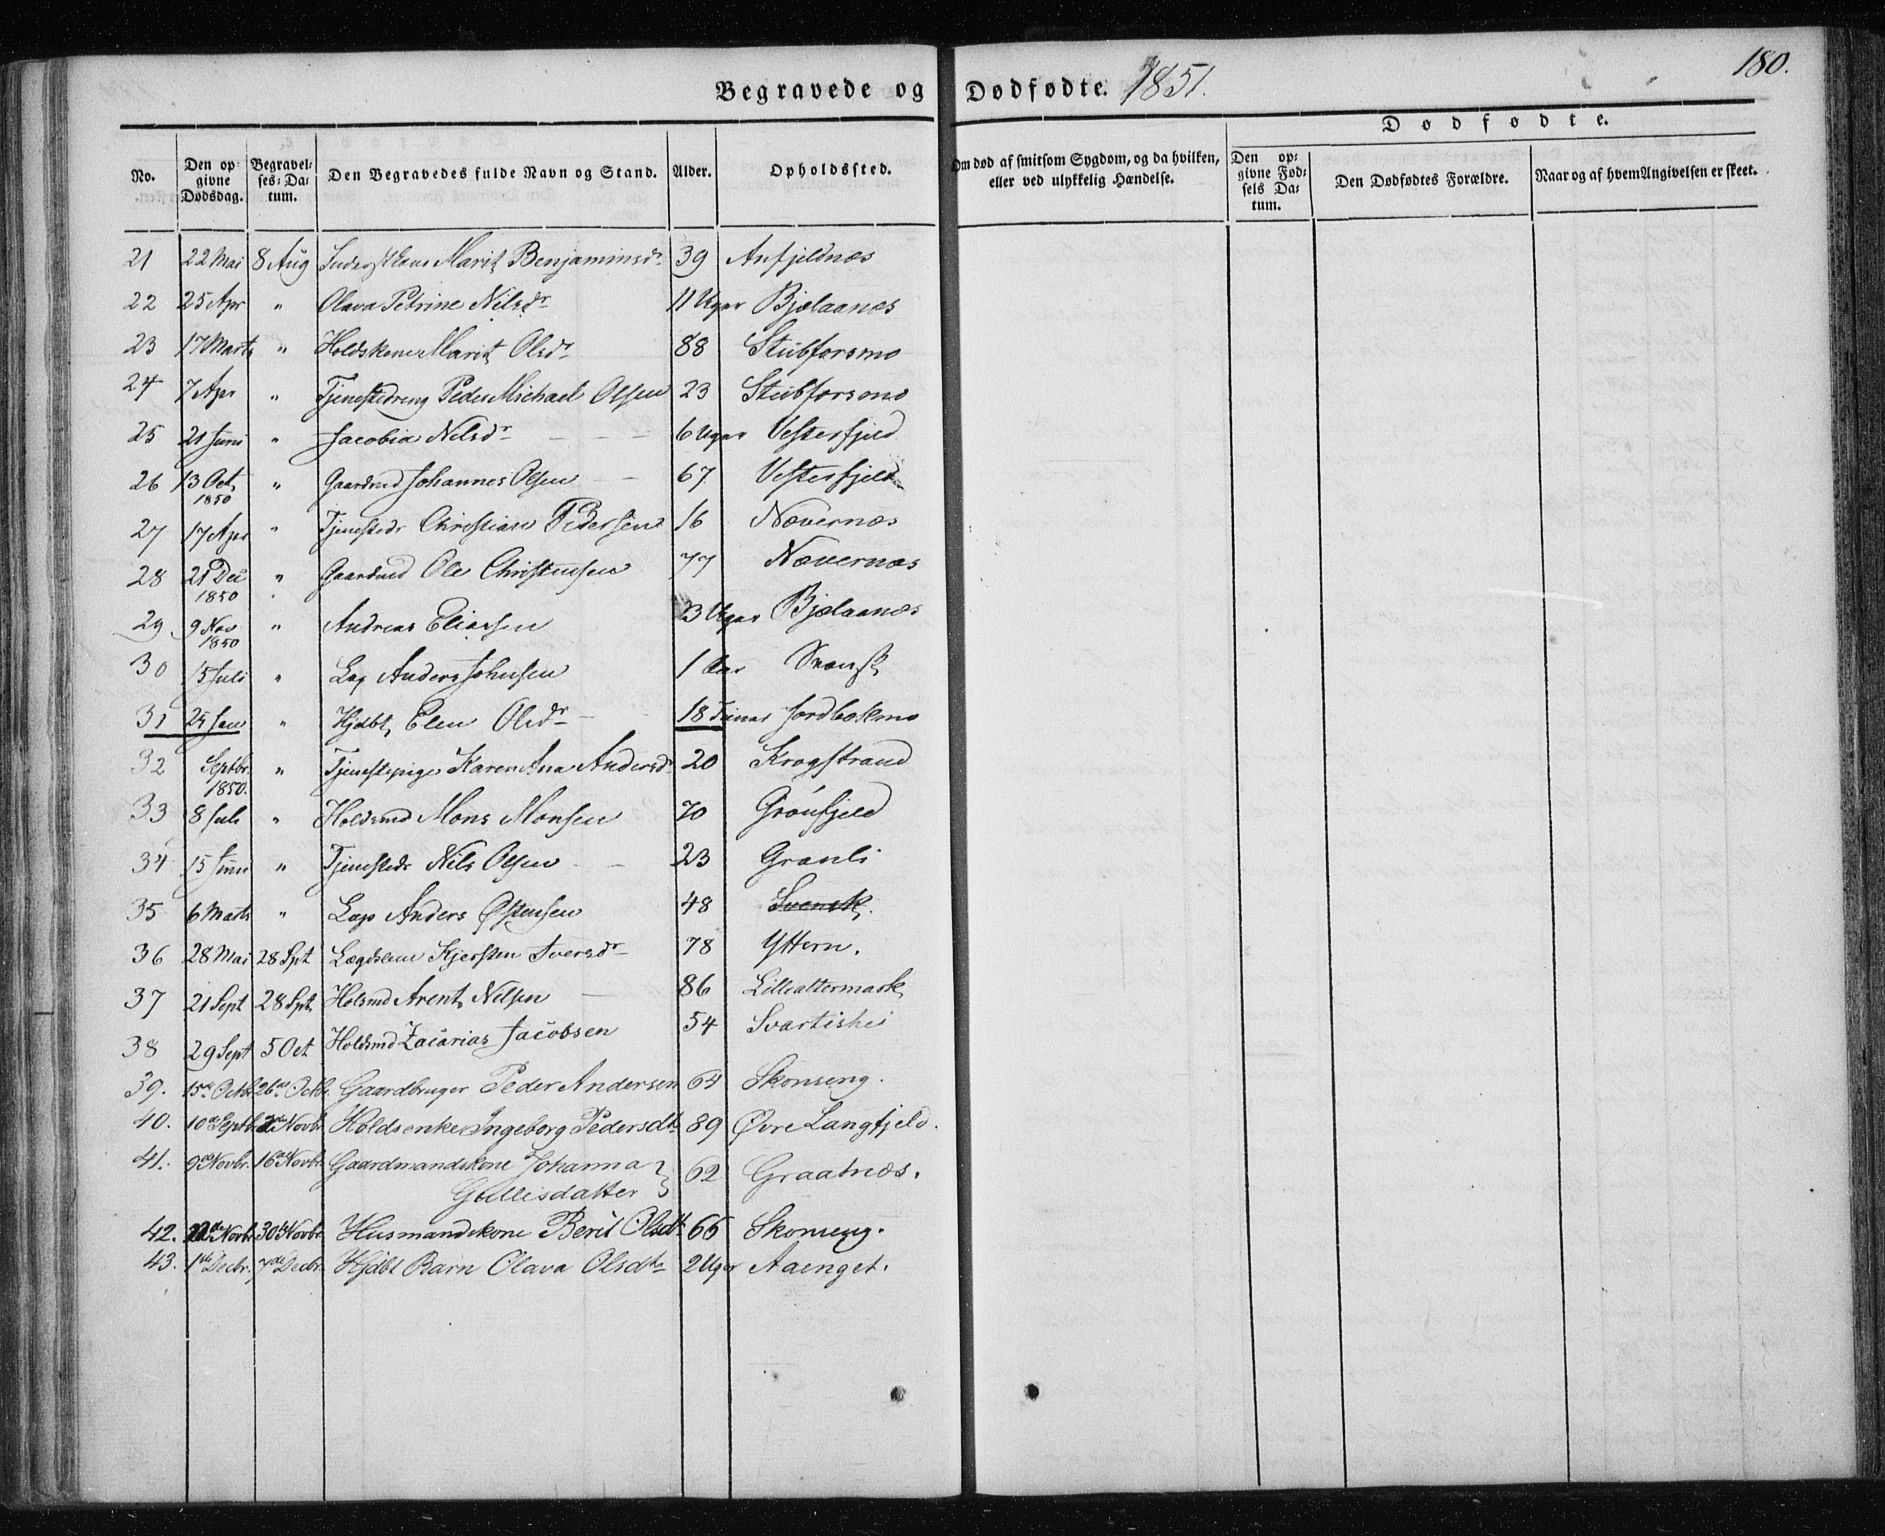 180.
Begravede og Dødfødte. 1851.
Dødfødte.
No. Den opgivne Dødsdag. Begravelses-Datum. Den Begravedes fulde Navn og Stand. Alder. Opholdssted. Om død af smitsom Sygdom, og da hvilken, eller ved ulykkelig Hændelse. Den opgivne Fødsels Datum. Den Dødfødtes Forældre. Naar og af hvem Angivelsen er skeet.
21 22 Mai 8 Aug Marit Benjaminsdr 39 Anfjeldnæs
22 25 Apr " Olava Petrine Nilsdr 11 Uger Bjelaanes
23 17 Marts " Holdskone Marit Olsdr 88 Stubforsmo
24 7 Apr " Tjenestedreng Peder Michael Olsen 23 Stubforsmo
25 21 Juni " Jacobia Nelsdr 6 Uger Vesterfjeld
26 13 Oct 1850 " Gaardmd Johannes Olsen 67 Vesterfjeld
27 17 Apr " Tjenestedr Christian Pedersen 16 Nævernæs
28 21 Dec 1850 " Gaardmd Ole Christensen 77 Nævernæs
29 9 Nov 1850 " Andreas Eliassen 3 Uger Bjelaanæs
30 15 Juli " Lap Anders Johnsen 1 Aar Svensk
31 25 Jan " Hjdbt Elen Olsdr 18 Timer Jordbækmo
32 Septbr. 1850. " Tjenestepige Karen Ana Andersdr 20 Krogstrand
33 8 Juli " Holdsmd Mons Monsen 70 Grønfjeld
34 15 Juni " Tjenestedr Nils Olsen 23 Granli
35 6 Marts " Lap Anders Østensen 48 Svensk.
36 28 Mai 28 Spt Lægdslem Kjersten Iversdr 78 Yttern.
37 21 Sept 28 Spt Holsmd Arent Nelsen 86 Lilleattermark
38 29 Sept 5 Oct Holdsmd Zacarias Jacobsen 54 Svartishei
39. 15de Octbr 26de Octbr. Gaardbruger Peder Andersen 64 Skonseng.
40. 10de Septbr. 2de Novbr Holdsenke Ingeborg Pedersdtr 89 Øvre Langfjeld.
41. 9de Novbr. 16de Novbr. Gaardmandskone Johanna
Gullisdatter 62 Graatnæs.
42. Novbr. 30te Novbr. Husmandskone Berit Olsdtr 66 Skonseng.
43. 1ste Decbr. 7de Decbr. Hjdbt Barn Olava Olsdtr 2 Uger Aaenget.